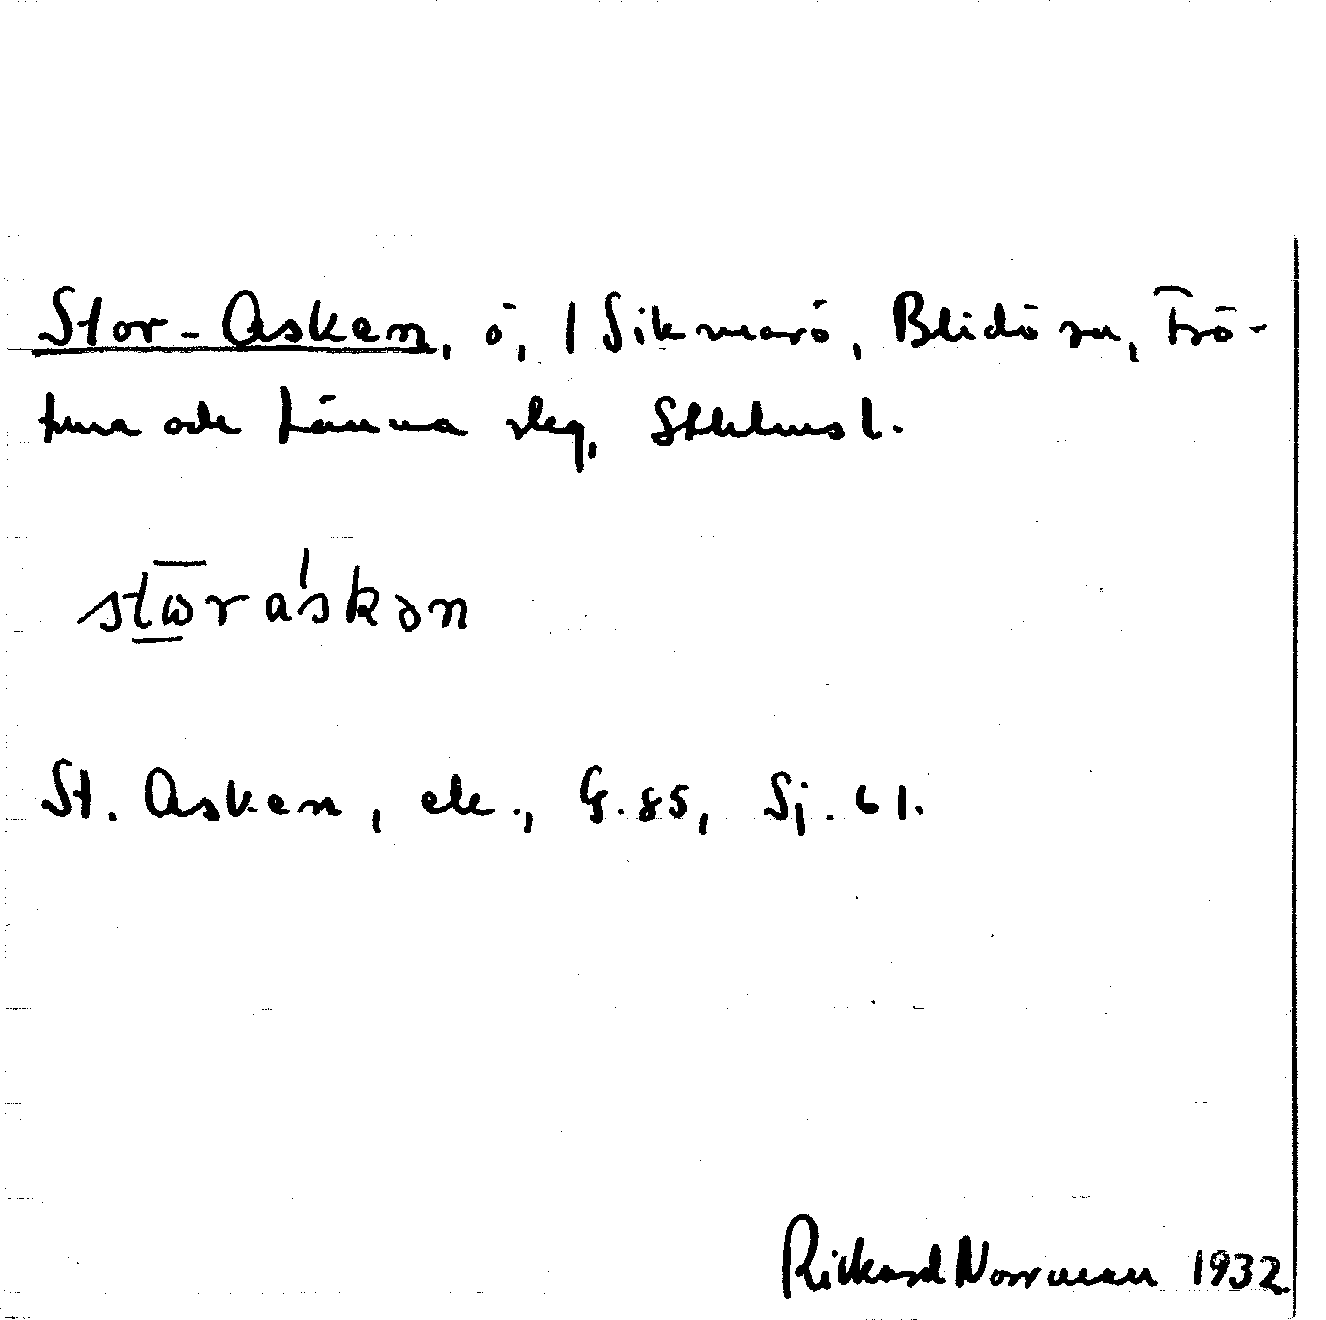 Stor-Asken, ö, / Sikmarö, Blidö sn, Frö-
tuna och Länna slg, Sthlms l.
stωra'skən
St. Asken, ek., G. 85, Sj. 61.
Rickard Norrman 1932